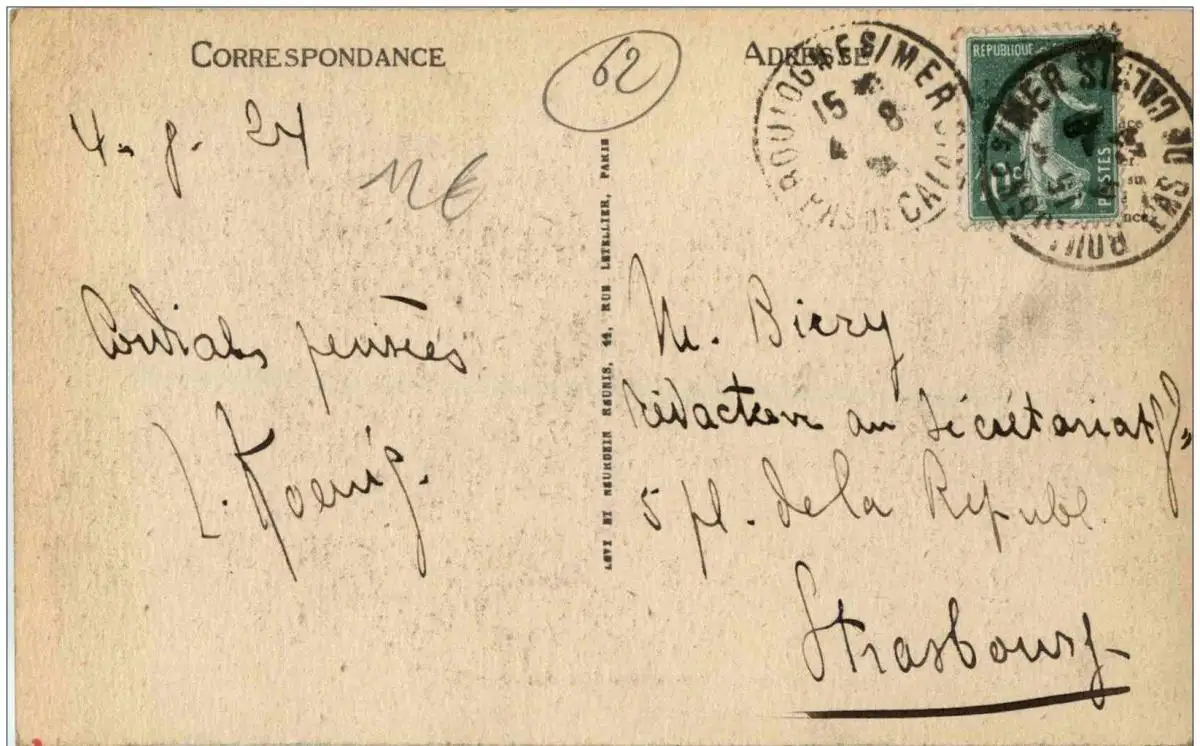 CORRESPONDANCE
ADRESSE
62
4. 8. 24
12€
Cordiales pensées
L. Koenig.
LEVY ET NEURDEIN RÉUNIS, 44, RUE LETELLIER, PARIS
RÉPUBLIQUE
POSTES
BOULOGNE S/MER
PAS DE CALAIS
15
4 8
S/MER STA
PAS DE CALAIS
M. Biery
Rédacteur au Secrétariat G
5 pl. de la Républ.
Strasbourg